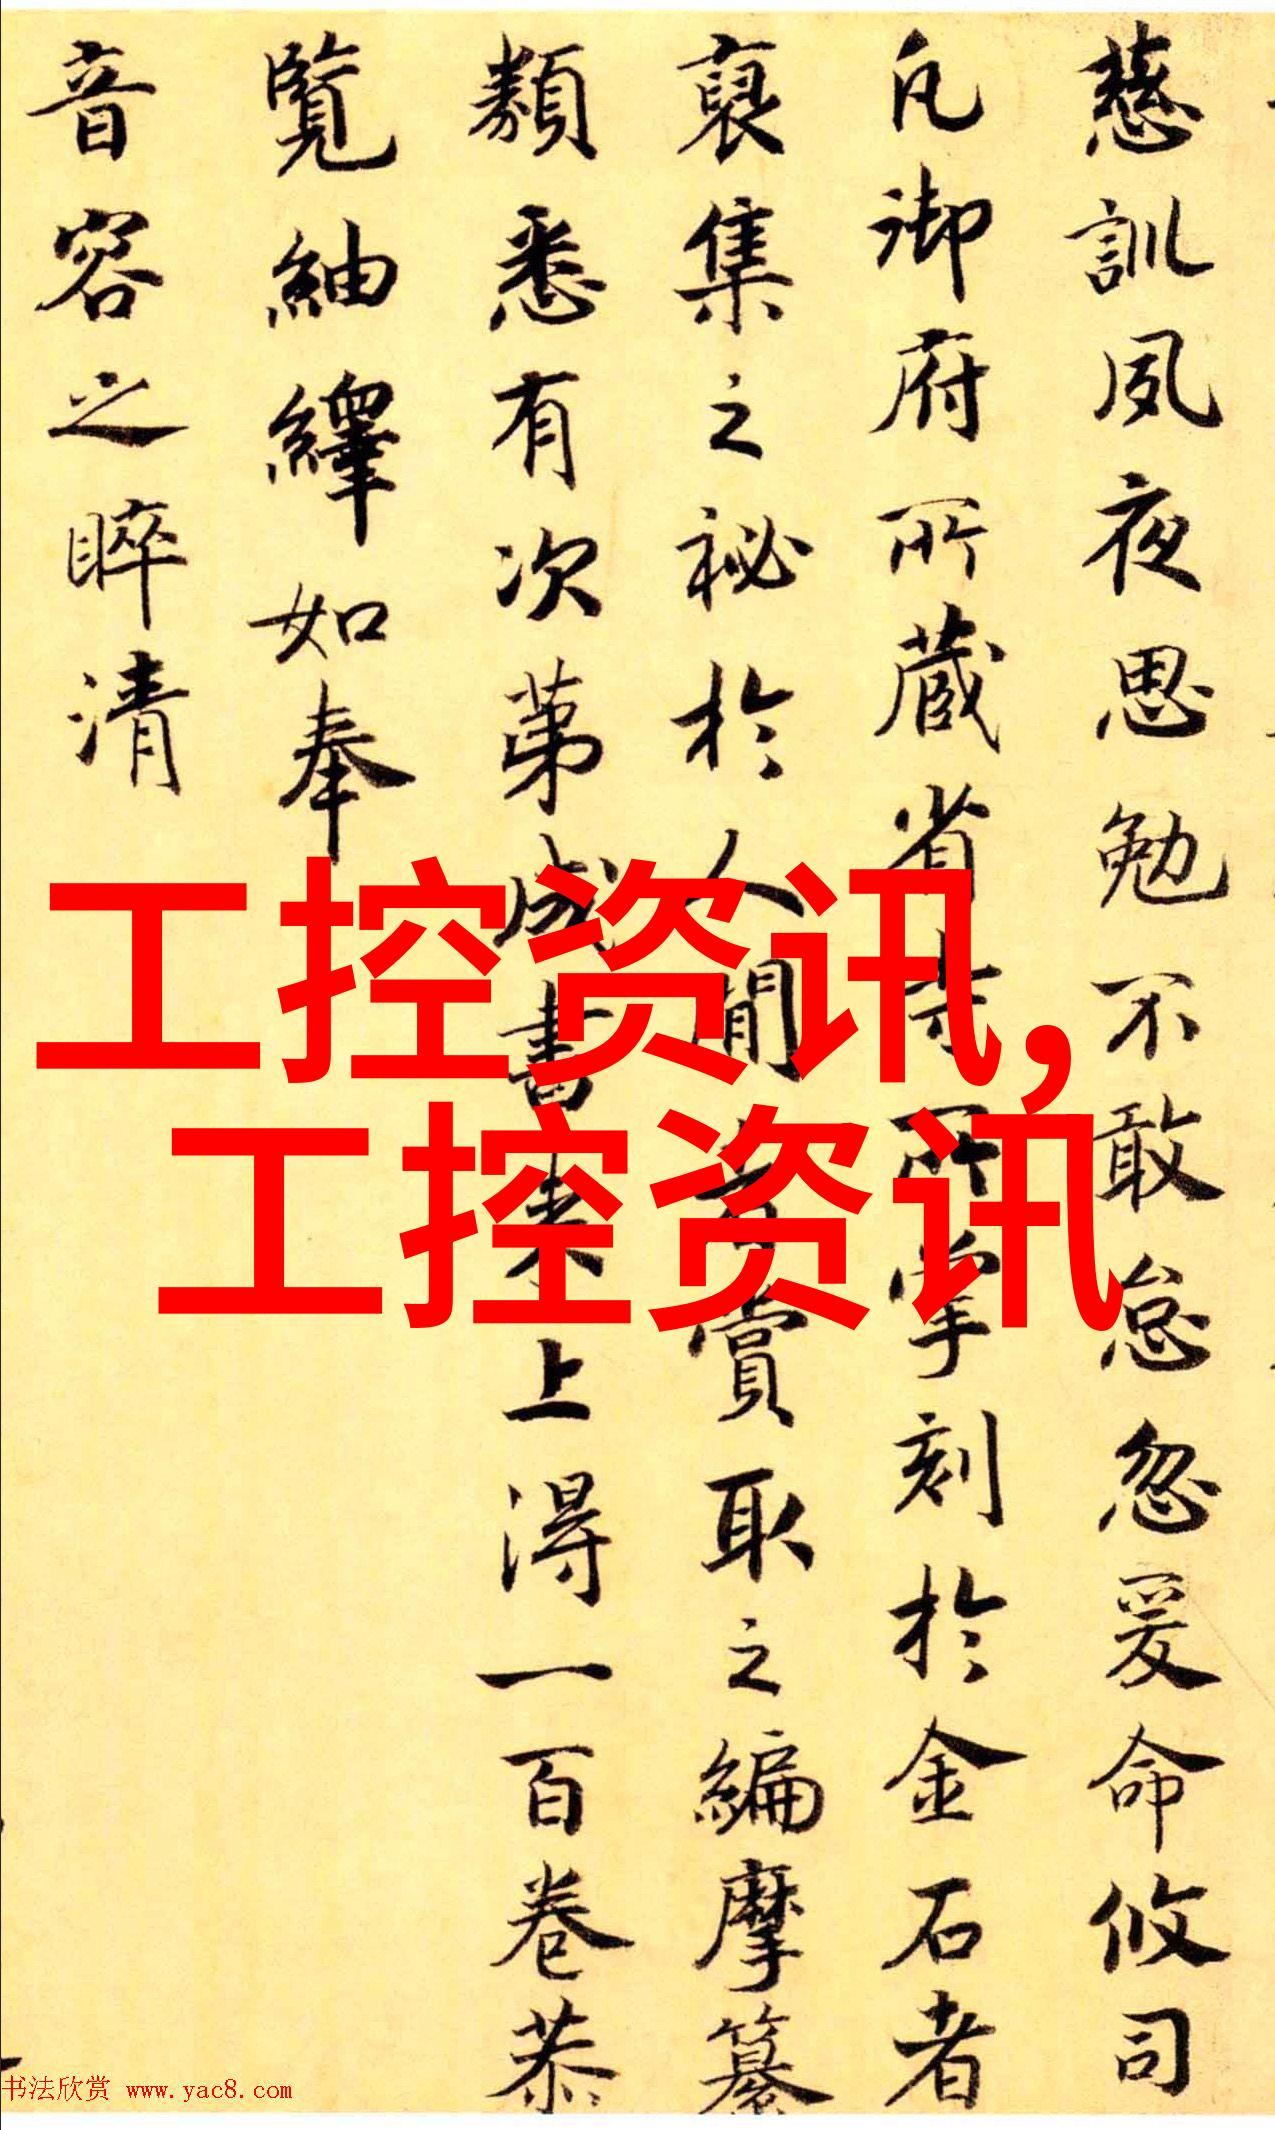 慈訓夙夜思勉不敢怠忽爰命攸司
凡御府所藏省寺所掌刻於金石者
裒集之祕於人間者賞取之編摩纂
類悉有次第成書來上得一百卷恭
覽紬繹如奉
音容之睟清
工控资讯,
工控资讯
书法欣赏 www.yac8.com